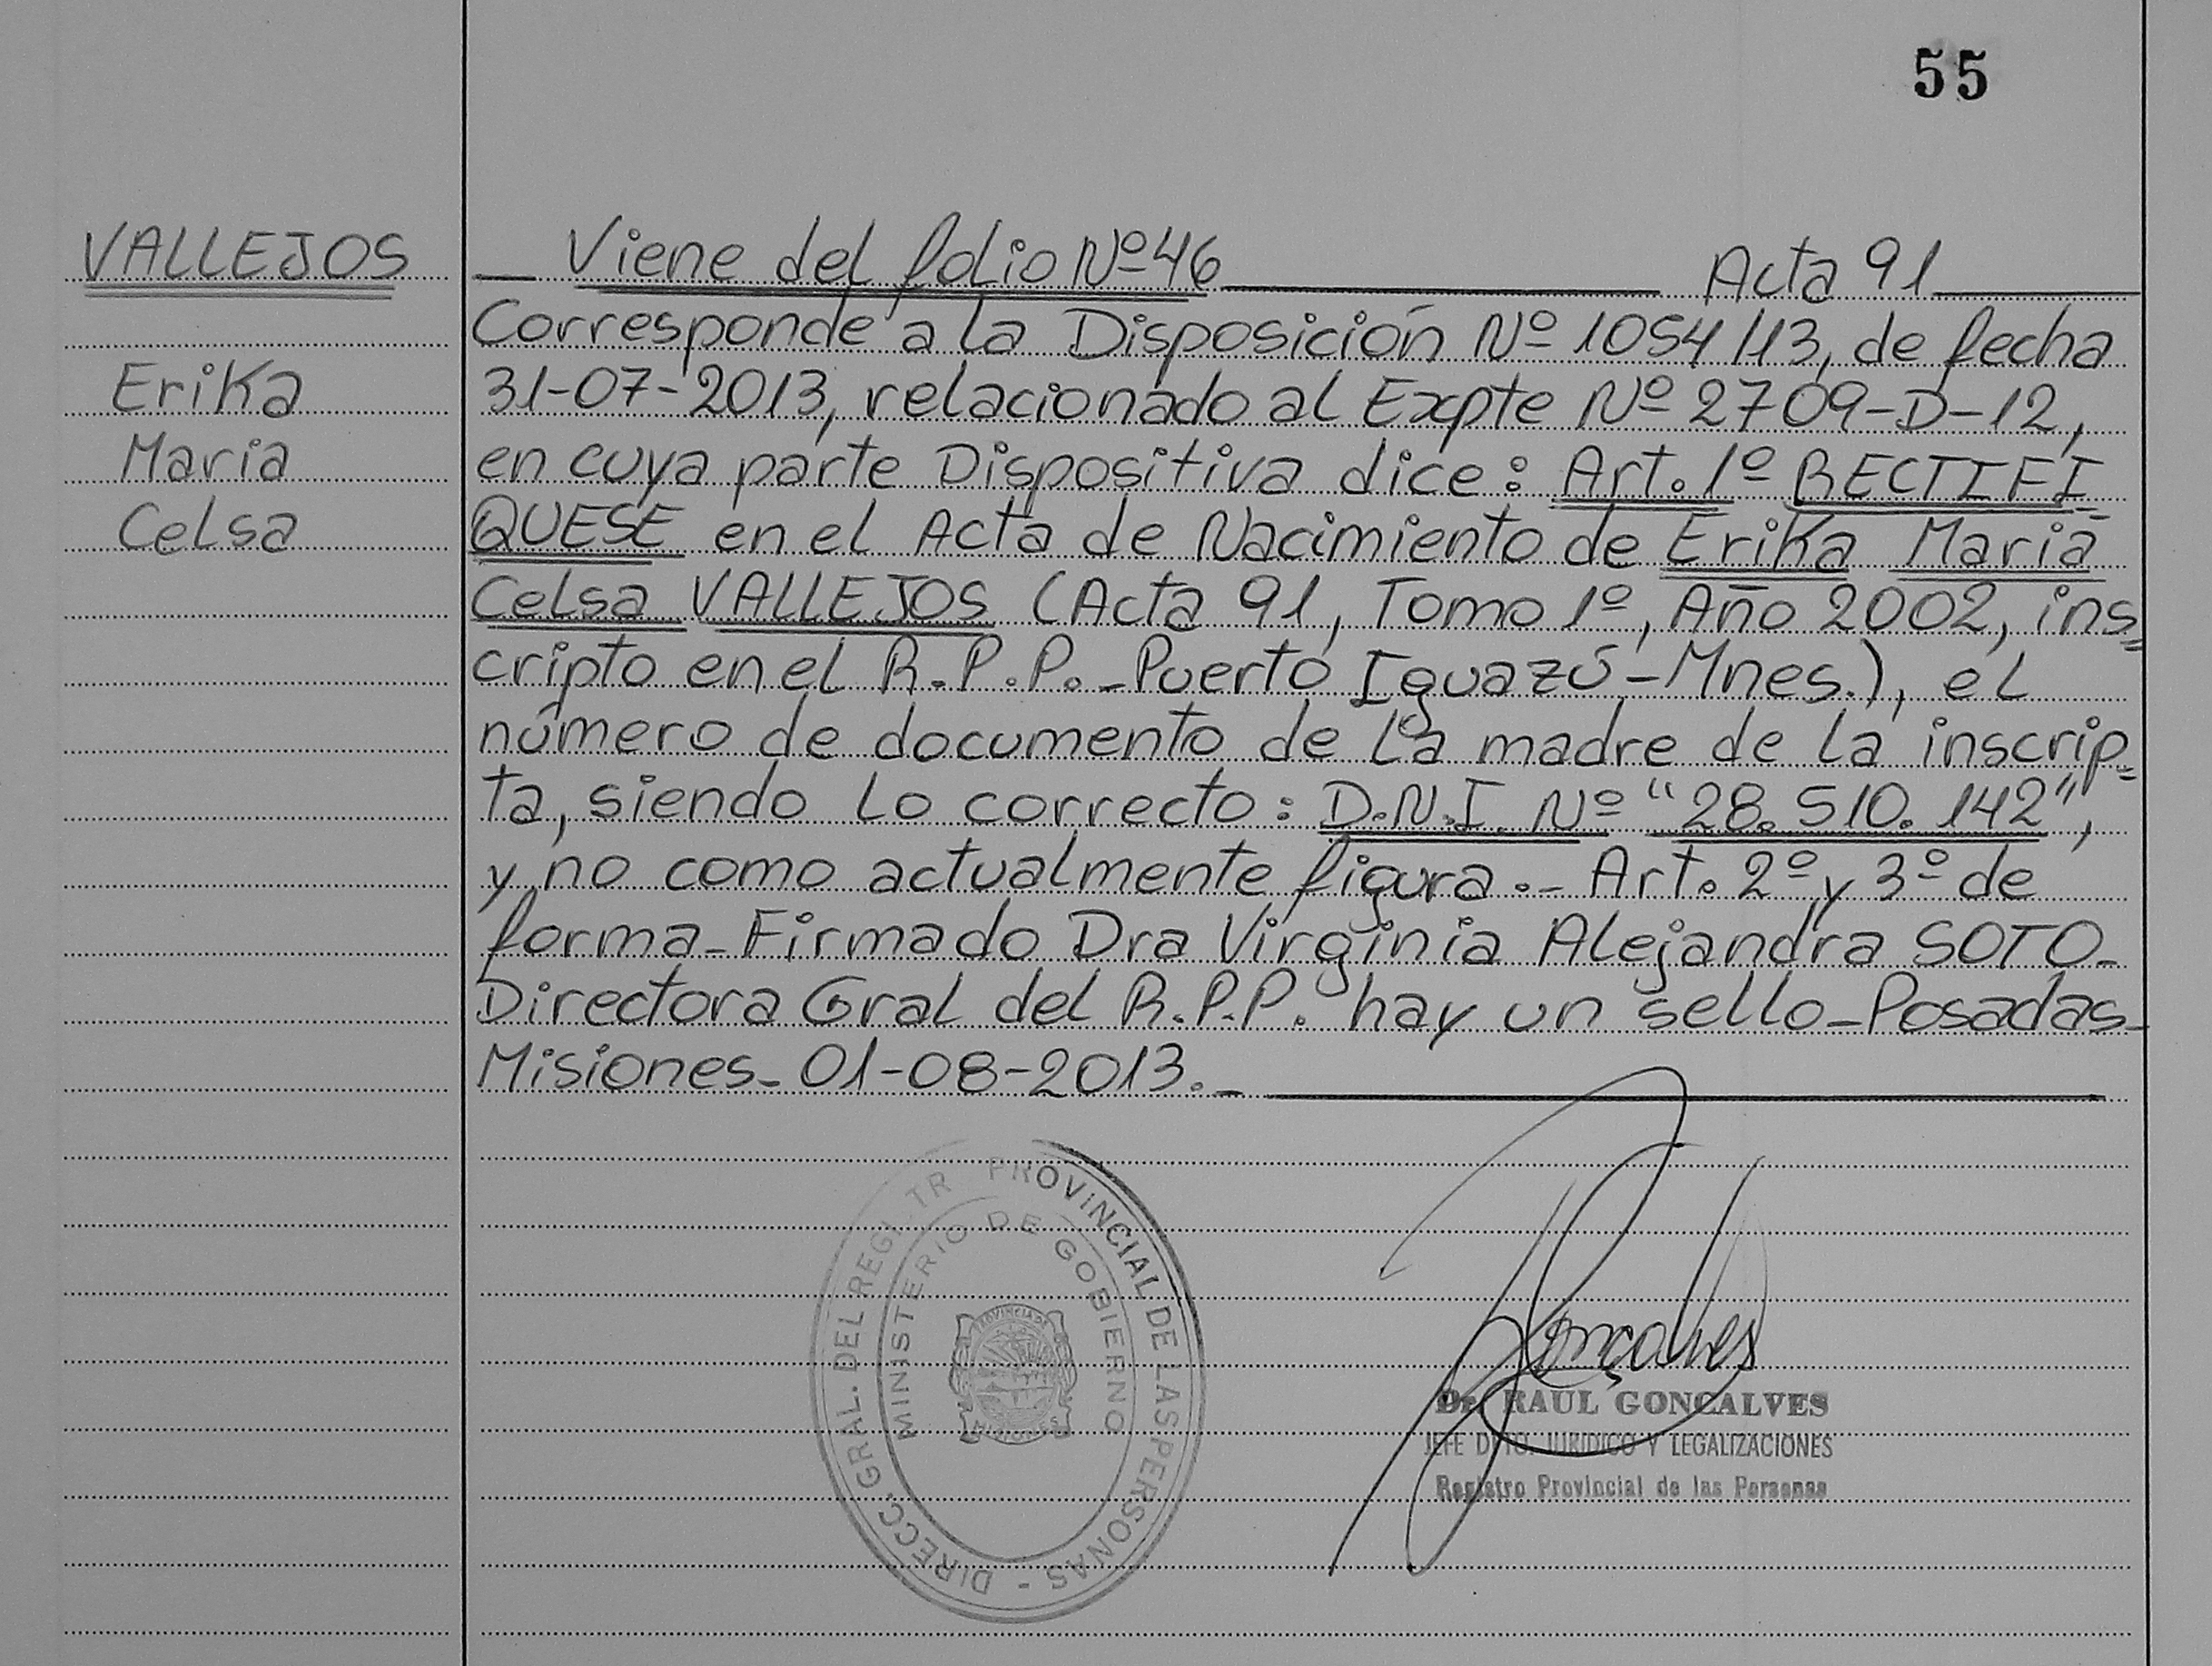 55
VALLEJOS
Erika
Maria
Celsa
Viene del folio Nº 46 Acta 91
Corresponde a la Disposición Nº 1054/13, de fecha
31-07-2013, relacionado al Expte Nº 2709-D-12,
en cuya parte Dispositiva dice: Art. 1º RECTIFI
QUESE en el Acta de Nacimiento de Erika Maria
Celsa VALLEJOS (Acta 91, Tomo 1º, Año 2002, ins=
cripto en el R.P.P. - Puerto Iguazú - Mnes.), el
número de documento de La madre de la inscrip=
ta, siendo Lo correcto: D.N.I. Nº "28.510.142",
y no como actualmente figura.- Art. 2º y 3º de
forma - Firmado Dra Virginia Alejandra SOTO-
Directora Gral del R.P.P. hay un sello - Posadas-
Misiones - 01-08-2013.-
DIRECC. GRAL. DEL REGI TR PROVINCIAL DE LAS PERSONAS -
MINISTERIO DE GOBIERNO
PROVINCIA DE
MISIONES
Gonçalves
Dr. RAUL GONÇALVES
JEFE DPTO. JURIDICO Y LEGALIZACIONES
Registro Provincial de las Personas